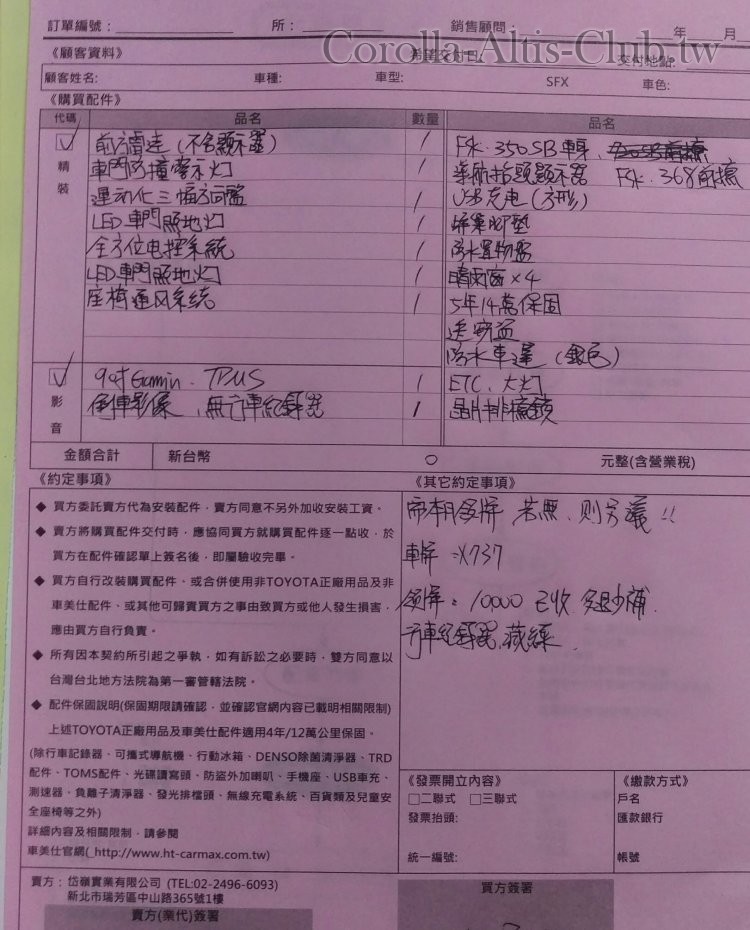 訂單編號： 所： 銷售顧問： 年 月
Corolla-Altis-Club.tw
《顧客資料》 希望交付日: 交付地點:
顧客姓名: 車種: 車型: SFX 車色:
《購買配件》
代碼 品名 數量 品名
精裝 前方雷達(不含顯示器) 1 FSK.350SB車身、
車門防撞警示灯 1 導航抬頭顯示器 FSK.368前擋
運動化三幅方向盤 USB充电(方形)
LED車門照地灯 1 蜂巢腳墊
全方位电控系統 1 防水置物盤
LED車門照地灯 1 晴雨窗×4
座椅通风系統 1 5年14萬保固
送安益
防水車邊(銀色)
影音 9吋Garmin. TPMS 1 ETC.大灯
倒車影像、無行車紀錄器 1 晶片排檔鎖
金額合計 新台幣 0 元整(含營業稅)
《約定事項》 《其它約定事項》
◆ 買方委託賣方代為安裝配件，賣方同意不另外加收安裝工資。
◆ 賣方將購買配件交付時，應協同買方就購買配件逐一點收，於
買方在配件確認單上簽名後，即屬驗收完畢。
◆ 買方自行改裝購買配件、或合併使用非TOYOTA正廠用品及非
車美仕配件、或其他可歸責買方之事由致買方或他人發生損害，
應由買方自行負責。
◆ 所有因本契約所引起之爭執，如有訴訟之必要時，雙方同意以
台灣台北地方法院為第一審管轄法院。
◆ 配件保固說明(保固期限請確認，並確認官網內容已載明相關限制)
上述TOYOTA正廠用品及車美仕配件適用4年/12萬公里保固。
(除行車記錄器、可攜式導航機、行動冰箱、DENSO除菌清淨器、TRD
配件、TOMS配件、光碟讀寫頭、防盜外加喇叭、手機座、USB車充、
測速器、負離子清淨器、發光排檔頭、無線充電系統、百貨類及兒童安
全座椅等之外)
詳細內容及相關限制，請參閱
車美仕官網(_http://www.ht-carmax.com.tw)
兩朝領牌 若無、則另議!!
車牌=X737
領牌：10000 已收 多退少補.
行車紀錄器.藏線.
《發票開立內容》 《繳款方式》
□二聯式 □三聯式 戶名
發票抬頭: 匯款銀行
統一編號: 帳號
賣方：岱嶺實業有限公司 (TEL:02-2496-6093)
新北市瑞芳區中山路365號1樓
賣方(業代)簽署 買方簽署